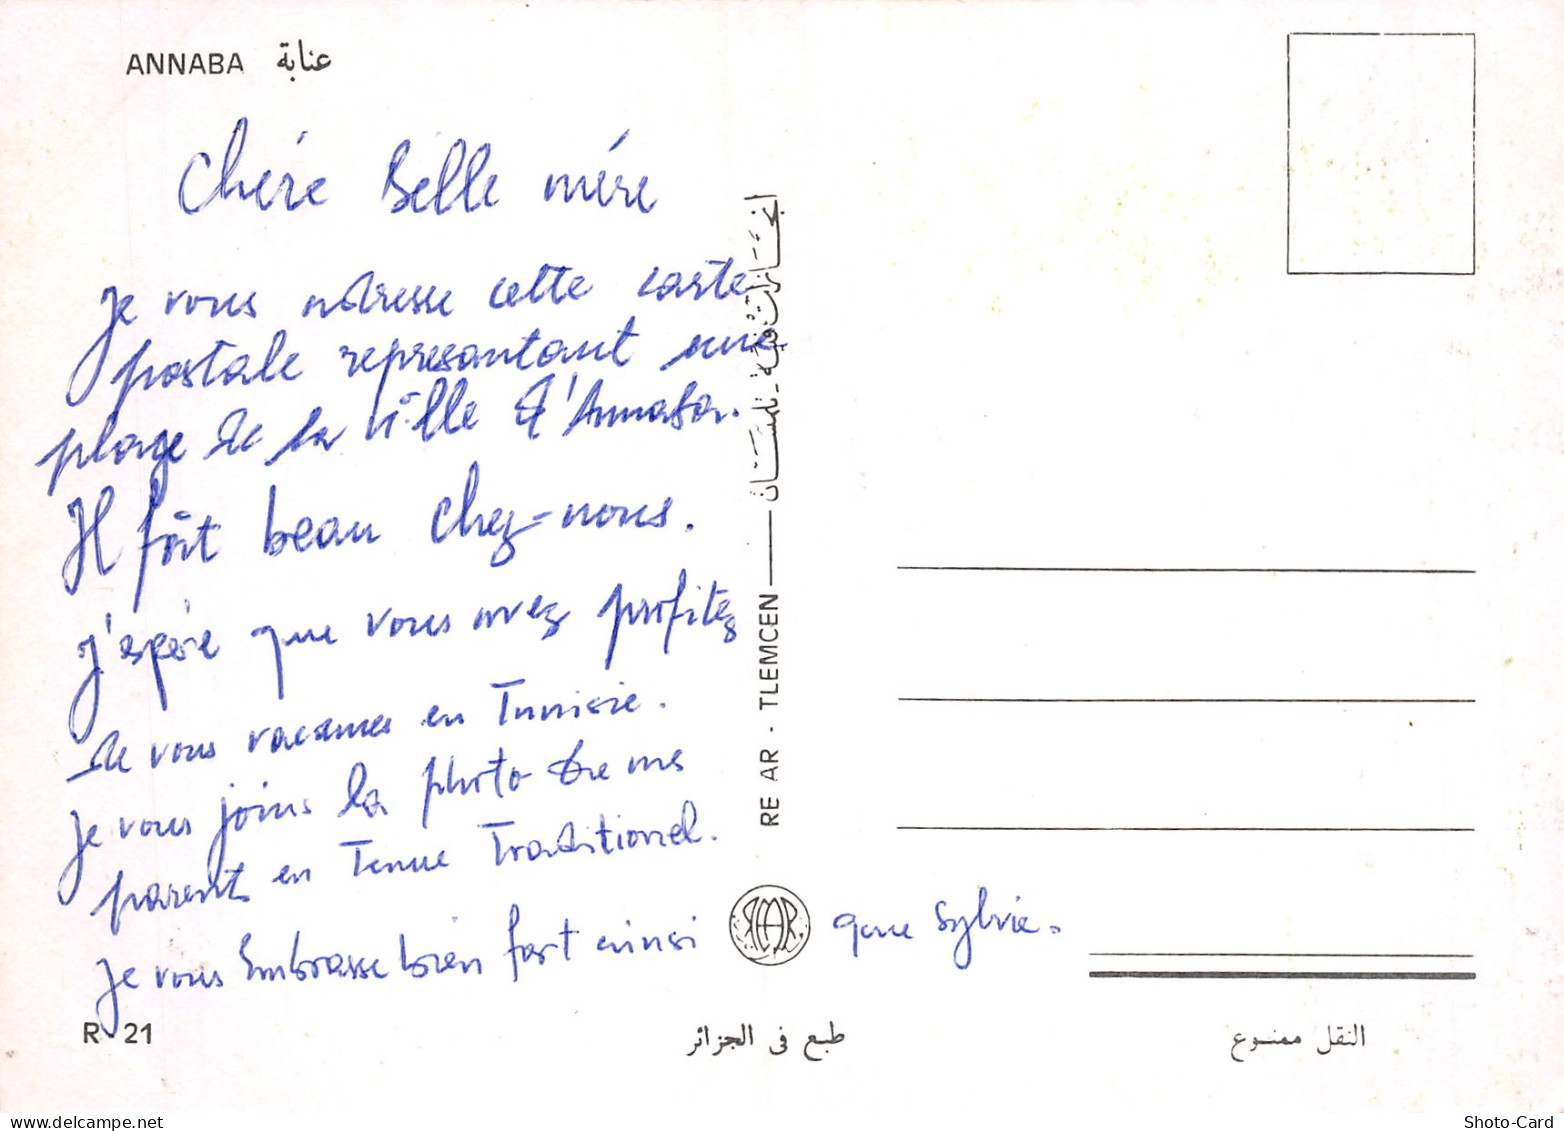 ANNABA عنابة
Chére Belle mére
Je vous adresse cette carte
postale represantant une
plage de la ville d'Annaba.
Il fait beau chez-nous.
J'espére que vous avez profitez
de vous vacances en Tunisie.
Je vous joins la photo de mes
parents en Tenue Traditionnel.
Je vous Embrasse bien fort ainsi que Sylvie.
RE AR - TLEMCEN
R - 21
طبع فى الجزائر
النقل ممنوع
Shoto-Card